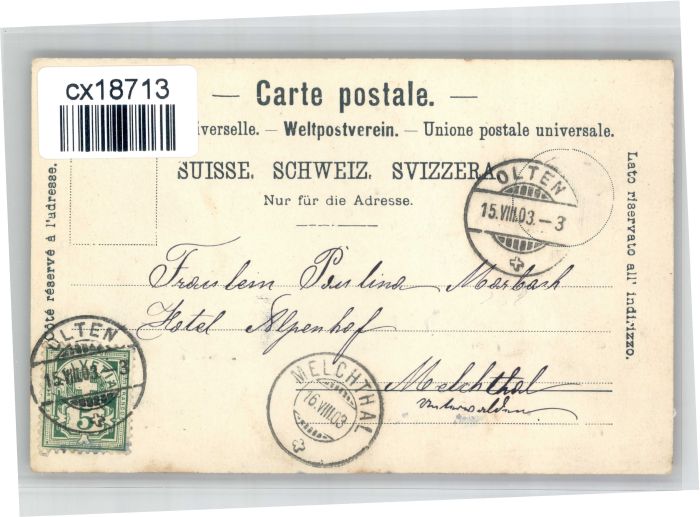 cx18713
— Carte postale. —
iverselle. — Weltpostverein. — Unione postale universale.
SUISSE. SCHWEIZ. SVIZZERA
Nur für die Adresse.
Côté réservé à l'adresse.
Lato riservato all' indirizzo.
OLTEN
15.VIII.03.–3
Fräulein Paulina Marbach
Hotel Alpenhof
Melchthal
Unterwalden.
OLTEN
15.VIII.03. 3
5
MELCHTHAL
16.VIII.03